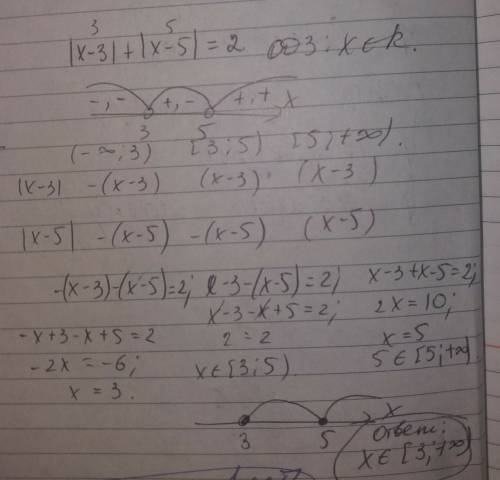 3 5
|x-3|+|x-5|=2 ОДЗ: x∈R.
-,- +,- +,+ x
3 5
(-∞;3) [3;5) [5;+∞).
|x-3| -(x-3) (x-3) (x-3)
|x-5| -(x-5) -(x-5) (x-5)
-(x-3)-(x-5)=2; x-3-(x-5)=2; x-3+x-5=2;
x-3-x+5=2; 2x=10;
-x+3-x+5=2 2=2 x=5
-2x=-6; x∈[3;5). 5∈[5;+∞)
x=3.
x
3 5
Ответ:
x∈[3;+∞)